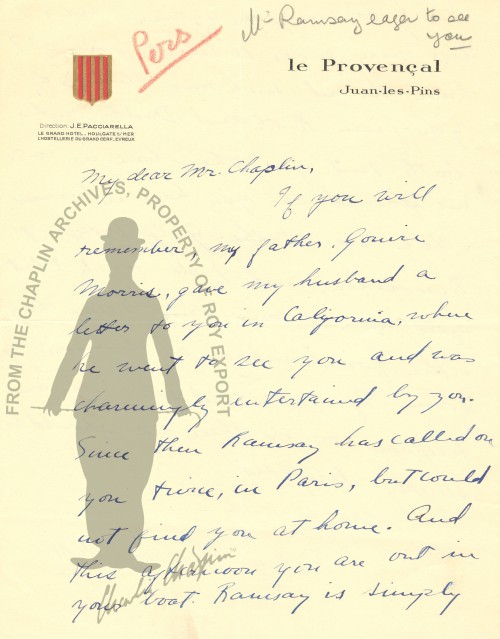 Pers
Mr Ramsay eager to see
you
le Provençal
Juan-les-Pins
Direction: J. E. PACCIARELLA
LE GRAND HOTEL - HOULGATE S/MER
L'HOSTELLERIE DU GRAND CERF, EVREUX
My dear Mr. Chaplin,
If you will
remember, my father, Gouverneur
Morris, gave my husband a
letter to you in California, where
he went to see you and was
charmingly entertained by you.
Since then Ramsay has called on
you twice, in Paris, but could
not find you at home. And
this afternoon you are out in
your boat. Ramsay is simply
FROM THE CHAPLIN ARCHIVES, PROPERTY OF ROY EXPORT
Charlie Chaplin